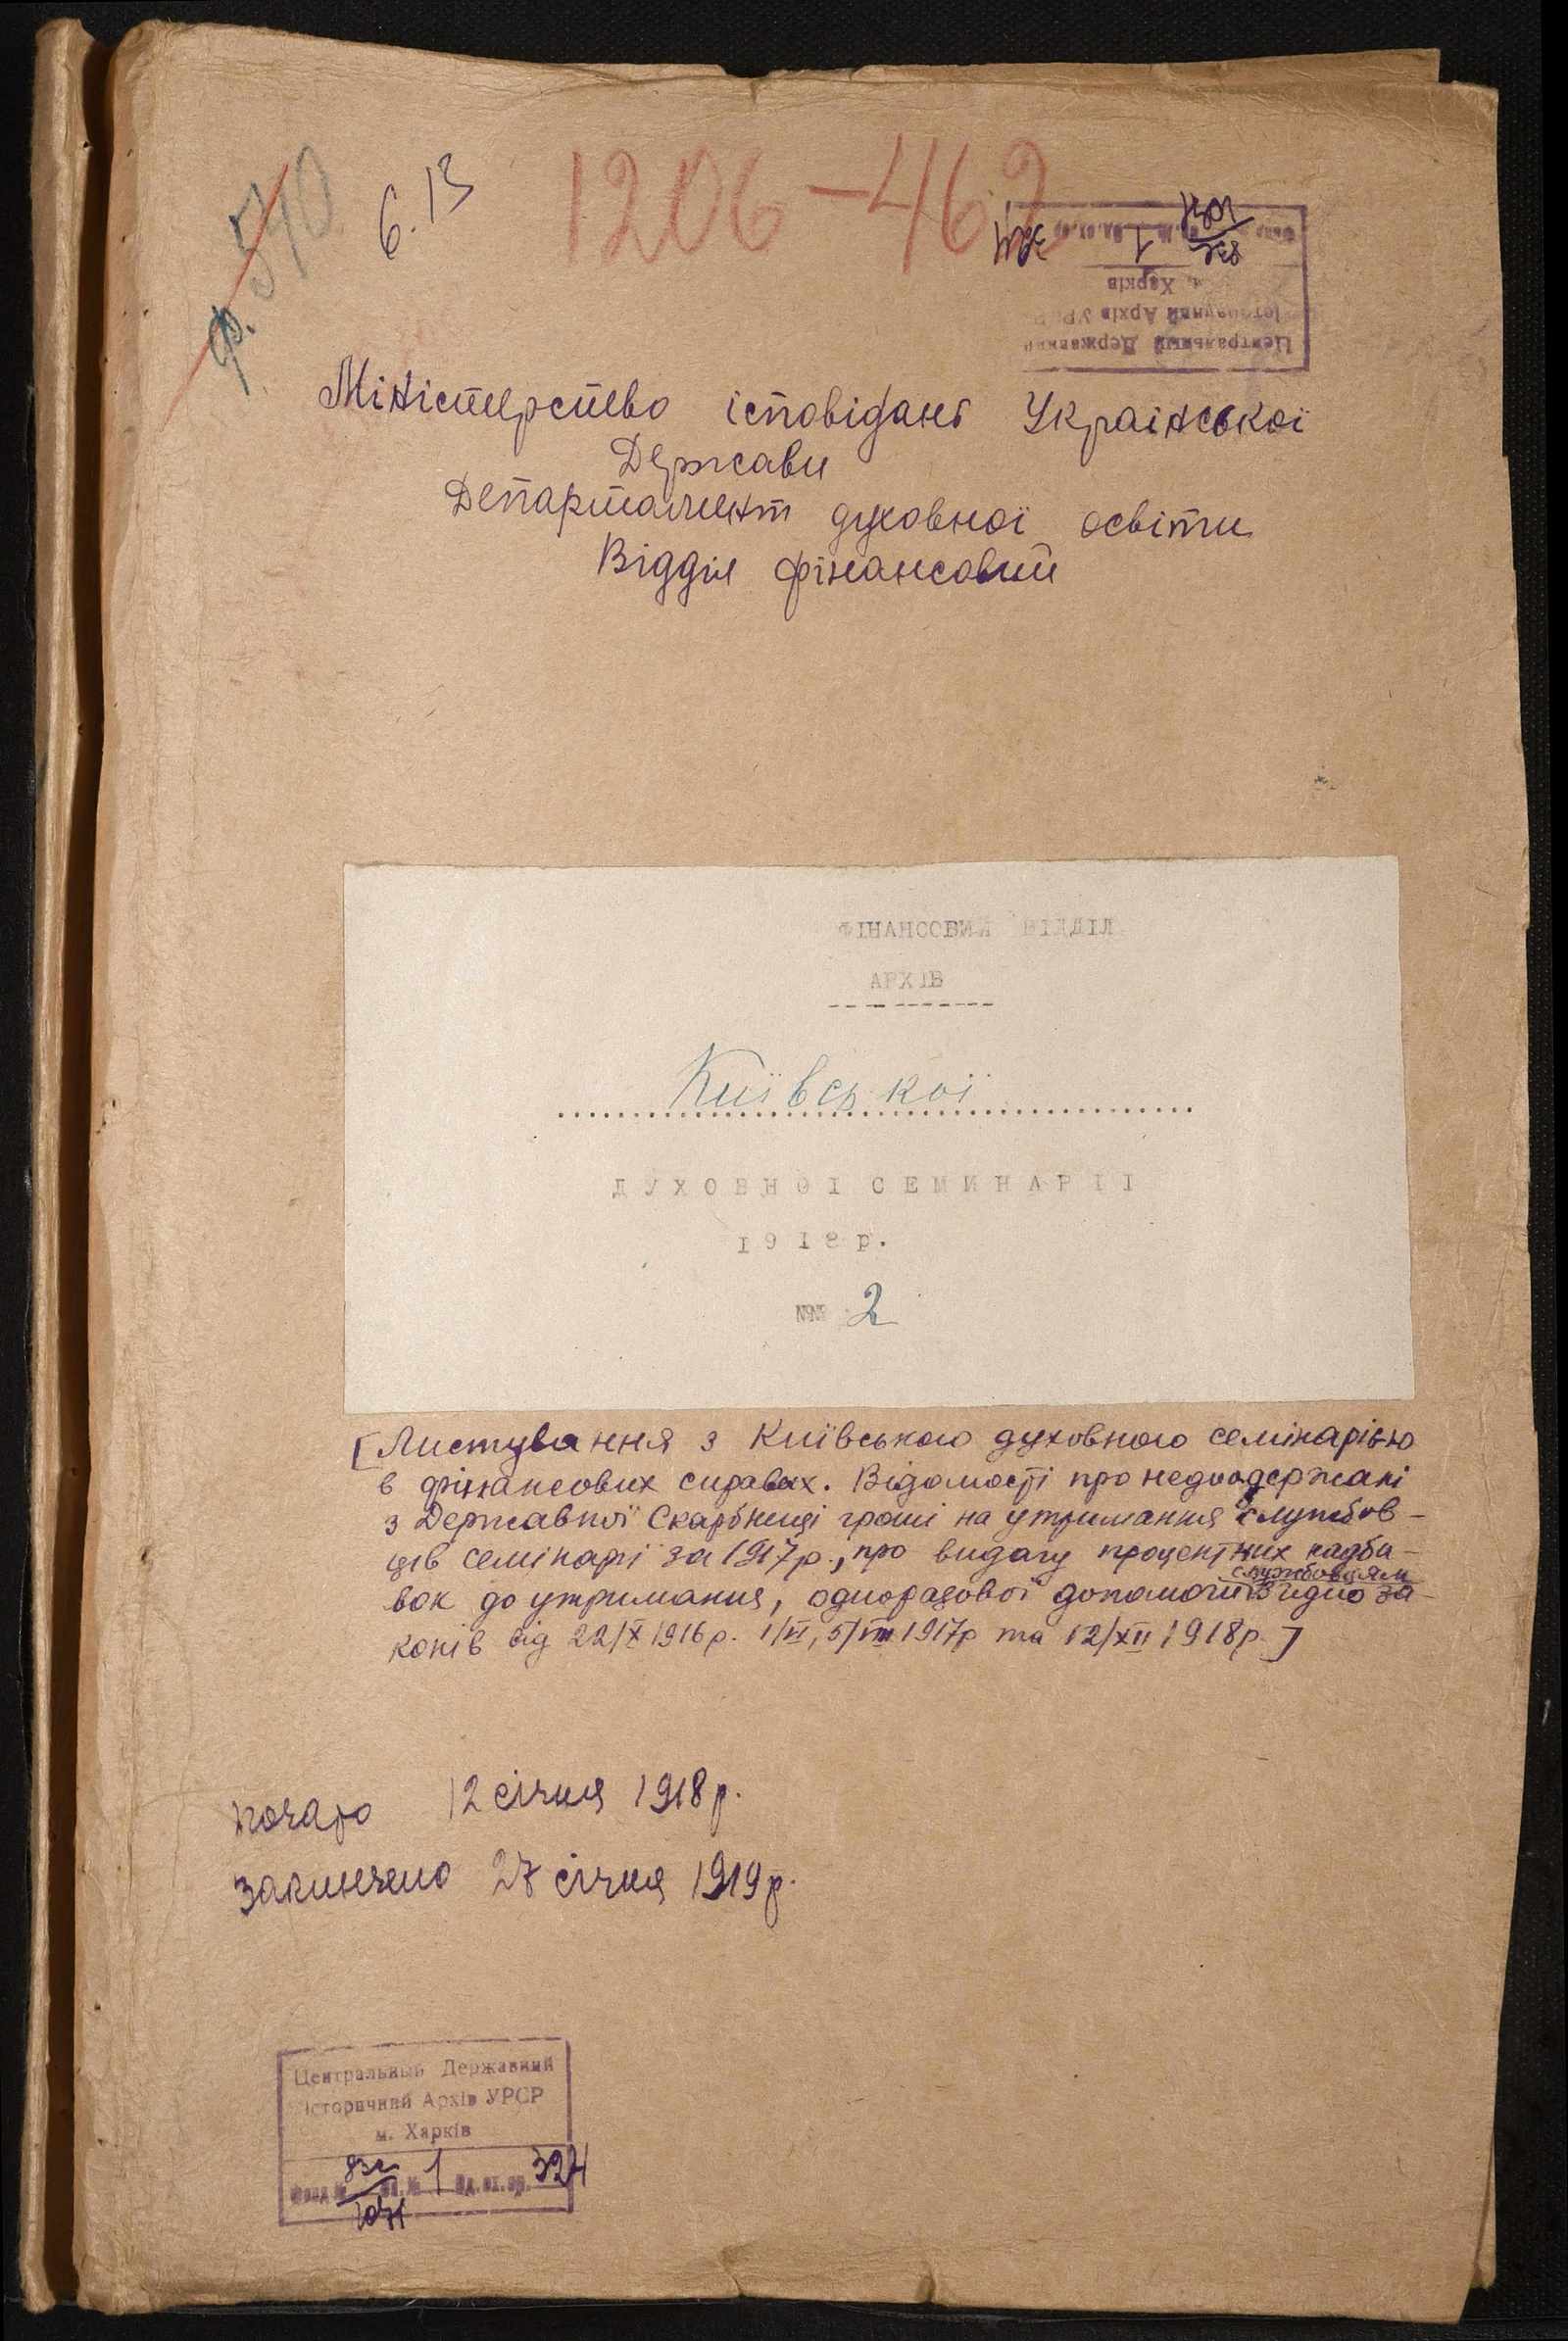 ф. 540
6.13
1206-462
Центральный Державний
Історичний Архів УРСР
м. Харків
1
324
Міністерство ісповідань Української
Держави
Департамент духовної освіти
Відділ фінансовий
ФІНАНСОВИЙ ВІДДІЛ
АРХІВ
Київської
ДУХОВНОІ СЕМИНАРІІ
1918 р.
№№ 2
[Листування з Київською духовною семінарією
в фінансових справах. Відомості про недоодержані
з Державної Скарбниці гроші на утримання службов-
ців семінарії за 1917 р., про видачу процентних надба-
службовцям
вок до утримання, одноразової допомоги згідно за-
конів від 22/X 1916 р. 1/VI, 5/VIII 1917р та 12/XII 1918р.]
почато 12 січня 1918 р.
закинчено 27 січня 1919 р.
Центральный Державний
Історичний Архів УРСР
м. Харків
Фонд № оп. № 1 Од. зб. 324
1071